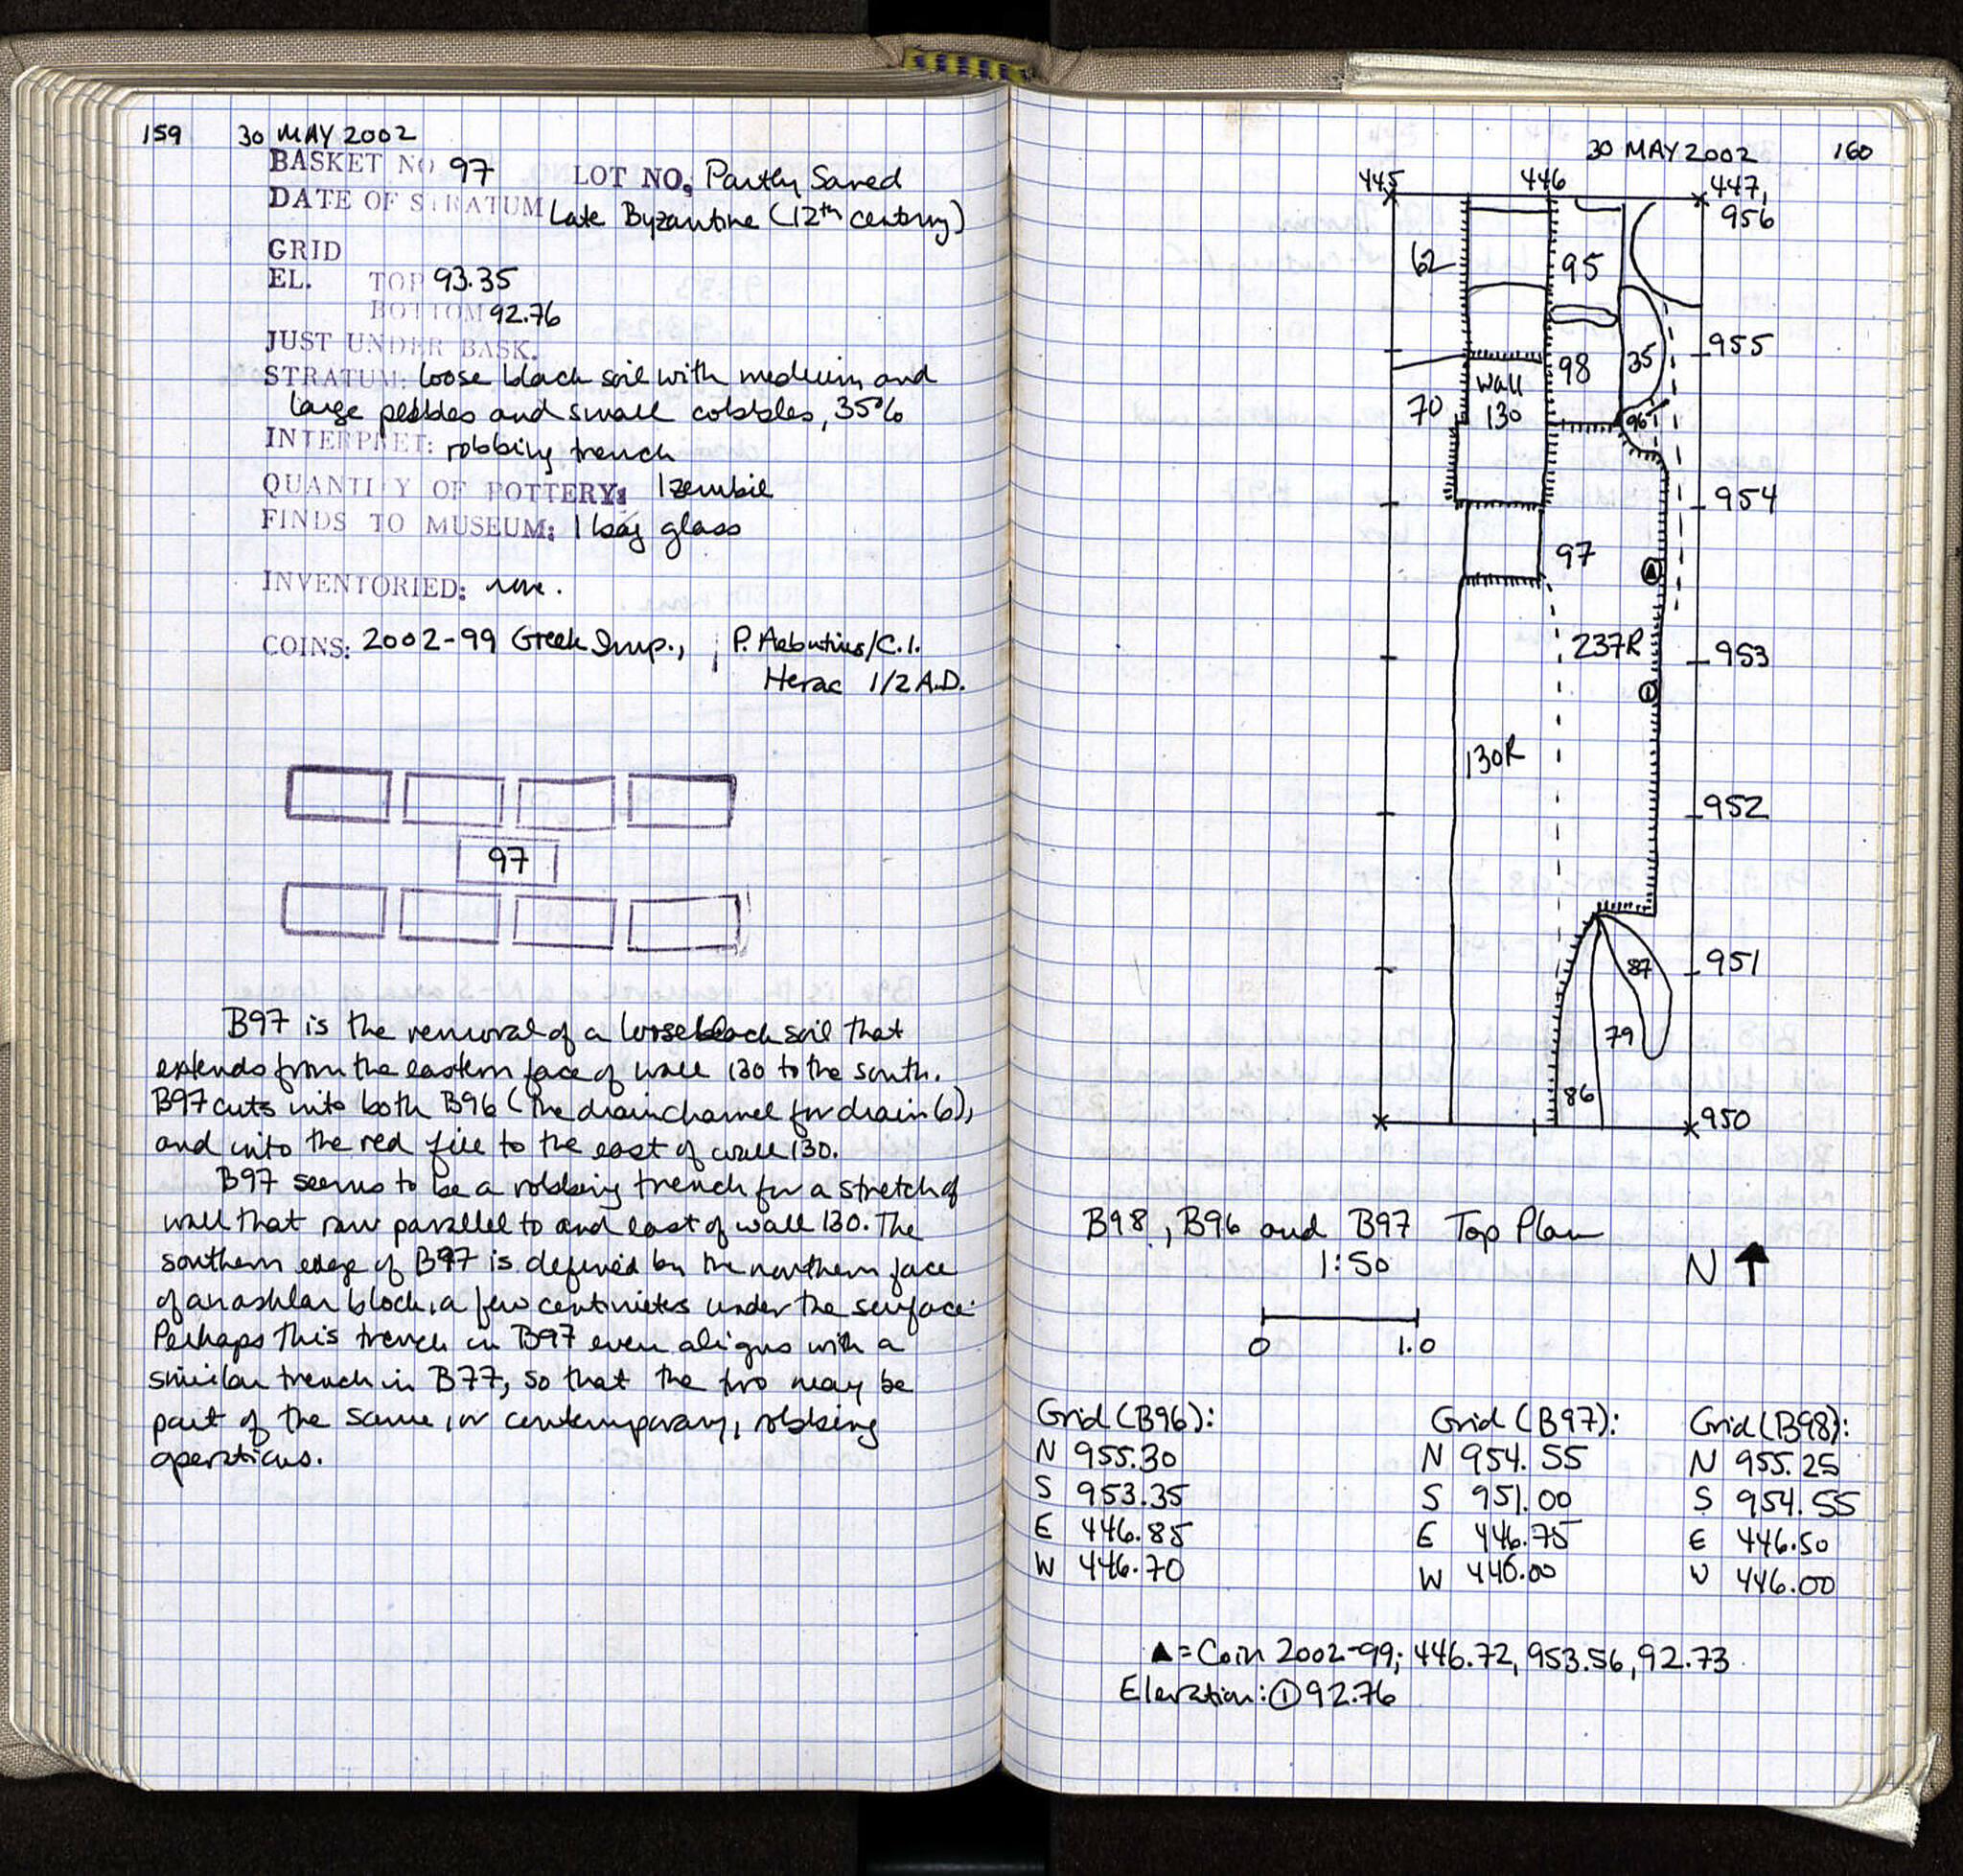 159 30 MAY 2002
BASKET NO. 97 LOT NO. Partly Saved
DATE OF STRATUM Late Byzantine (12th century)
GRID
EL. TOP 93.35
BOTTOM 92.76
JUST UNDER BASK.
STRATUM: loose black soil with medium and
large pebbles and small cobbles, 35%
INTERPRET: robbing trench
QUANTITY OF POTTERY: 1 zembil
FINDS TO MUSEUM: 1 bag glass
INVENTORIED: none.
COINS: 2002-99 Greek Imp., P. Aebutius/C.I.
Herac 1/2 A.D.
97
B97 is the removal of a loose black soil that
extends from the eastern face of wall 130 to the south.
B97 cuts into both B96 (the drain channel for drain 6),
and into the red fill to the east of wall 130.
B97 seems to be a robbing trench for a stretch of
wall that ran parallel to and east of wall 130. The
southern edge of B97 is defined by the northern face
of an ashlar block, a few centimeters under the surface.
Perhaps this trench in B97 even aligns with a
similar trench in B77, so that the two may be
part of the same, or contemporary, robbing
operations.
30 MAY 2002 160
445 446 447,
956
62 95
955
35
98
Wall
130
70
96
954
97
237R
953
1
130R
952
951
87
79
86
950
B98, B96 and B97 Top Plan
1:50 N
0 1.0
Grid (B96): Grid (B97): Grid (B98):
N 955.30 N 954.55 N 955.25
S 953.35 S 951.00 S 954.55
E 446.85 E 446.75 E 446.50
W 446.70 W 446.00 W 446.00
▲ = Coin 2002-99; 446.72, 953.56, 92.73
Elevation: ① 92.76